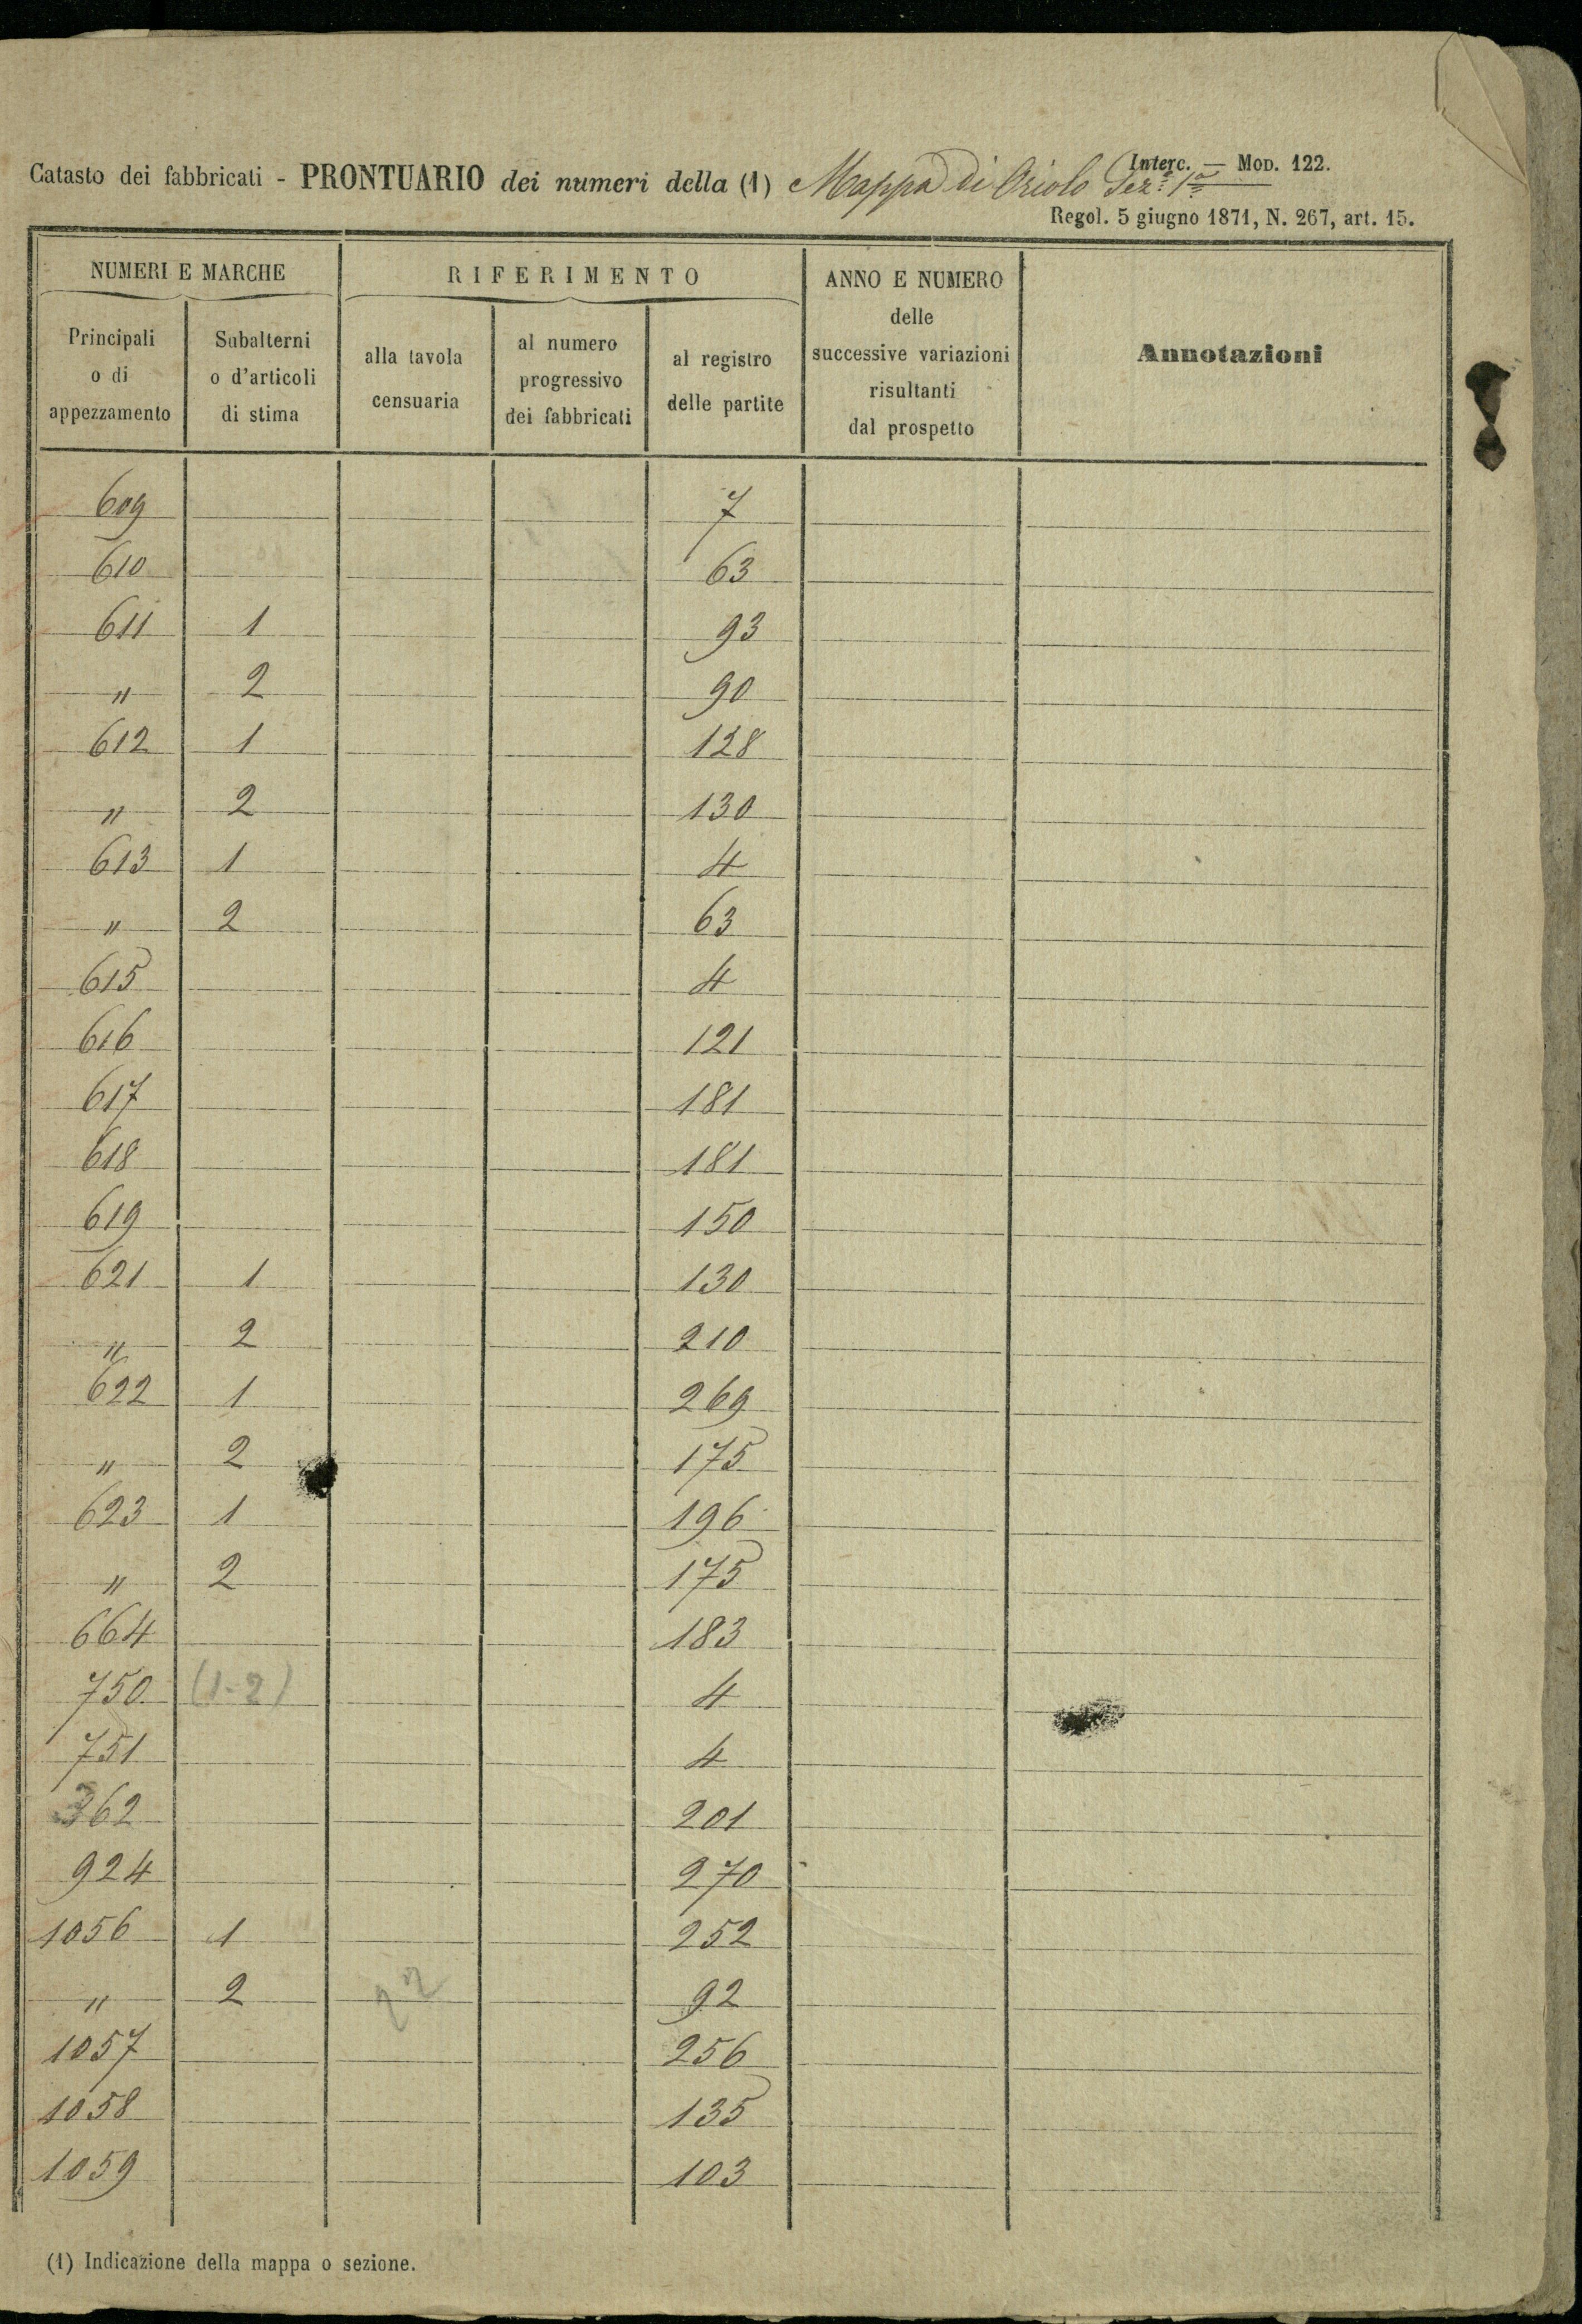 Interc. — Mod. 122.
Catasto dei fabbricati - PRONTUARIO dei numeri della (1) Mappa di Oriolo Sez.e 1a
Regol. 5 giugno 1871, N. 267, art. 15.
NUMERI E MARCHE RIFERIMENTO ANNO E NUMERO delle successive variazioni risultanti dal prospetto Annotazioni
Principali o di appezzamento Subalterni o d'articoli di stima alla tavola censuaria al numero progressivo dei fabbricati al registro delle partite
609 7
610 63
611 1 93
" 2 90
612 1 128
" 2 130
613 1 4
" 2 63
615 4
616 121
617 181
618 181
619 150
621 1 130
" 2 210
622 1 269
" 2 175
623 1 196
" 2 175
664 183
750 (1-2) 4
751 4
362 201
924 270
1056 1 252
" 2 92
1057 256
1058 135
1059 103
(1) Indicazione della mappa o sezione.